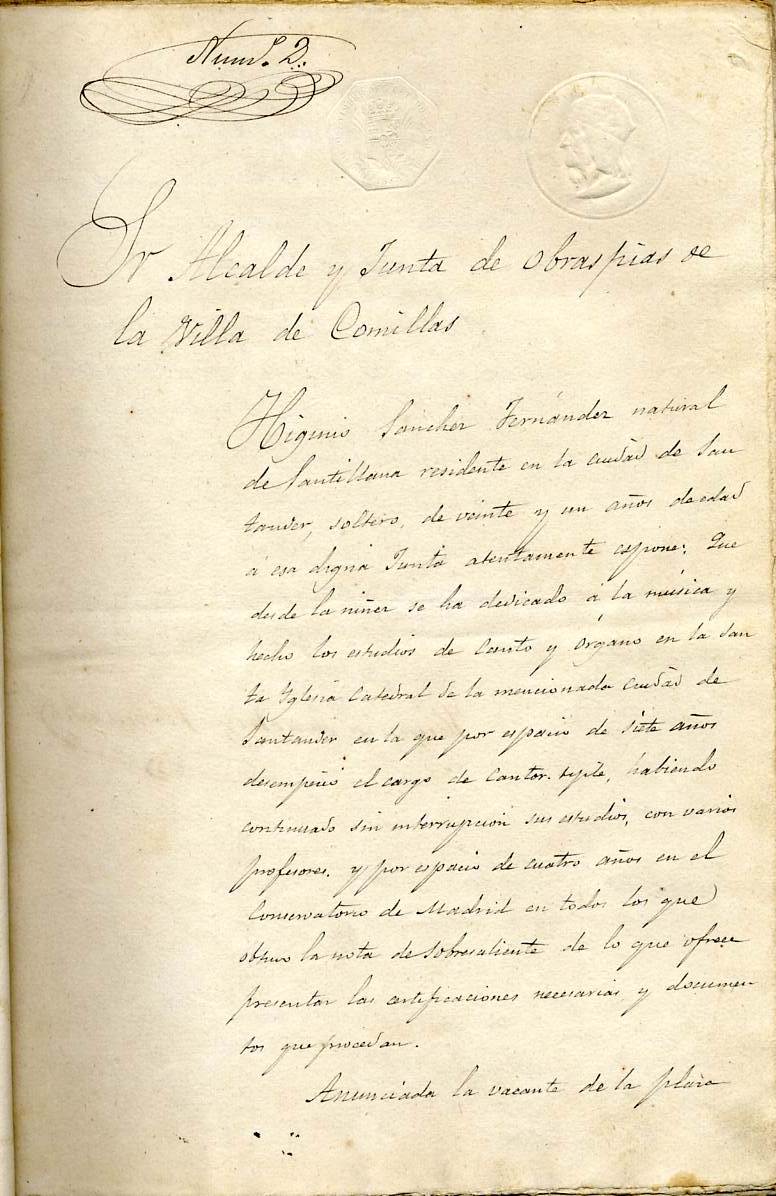 Num.º 2.
Sr Alcalde y Junta de Obraspias de
la Villa de Comillas
Higinio Sanchez Fernández natural
de Santillana residente en la ciudad de San
tander, soltero, de veinte y un años de edad
á esa digna Junta atentamente espone: Que
desde la niñez se ha dedicado á la música y
hecho los estudios de Canto y Órgano en la San
ta Iglesia Catedral de la mencionada ciudad de
Santander en la que por espacio de siete años
desempeñó el cargo de Cantor-tiple, habiendo
continuado sin interrupcion sus estudios, con varios
profesores, y por espacio de cuatro años en el
Conservatorio de Madrid en todos los que
obtuvo la nota de Sobresaliente de lo que ofrece
presentar las certificaciones necesarias y documen
tos que procedan.
Anunciada la vacante de la plaza